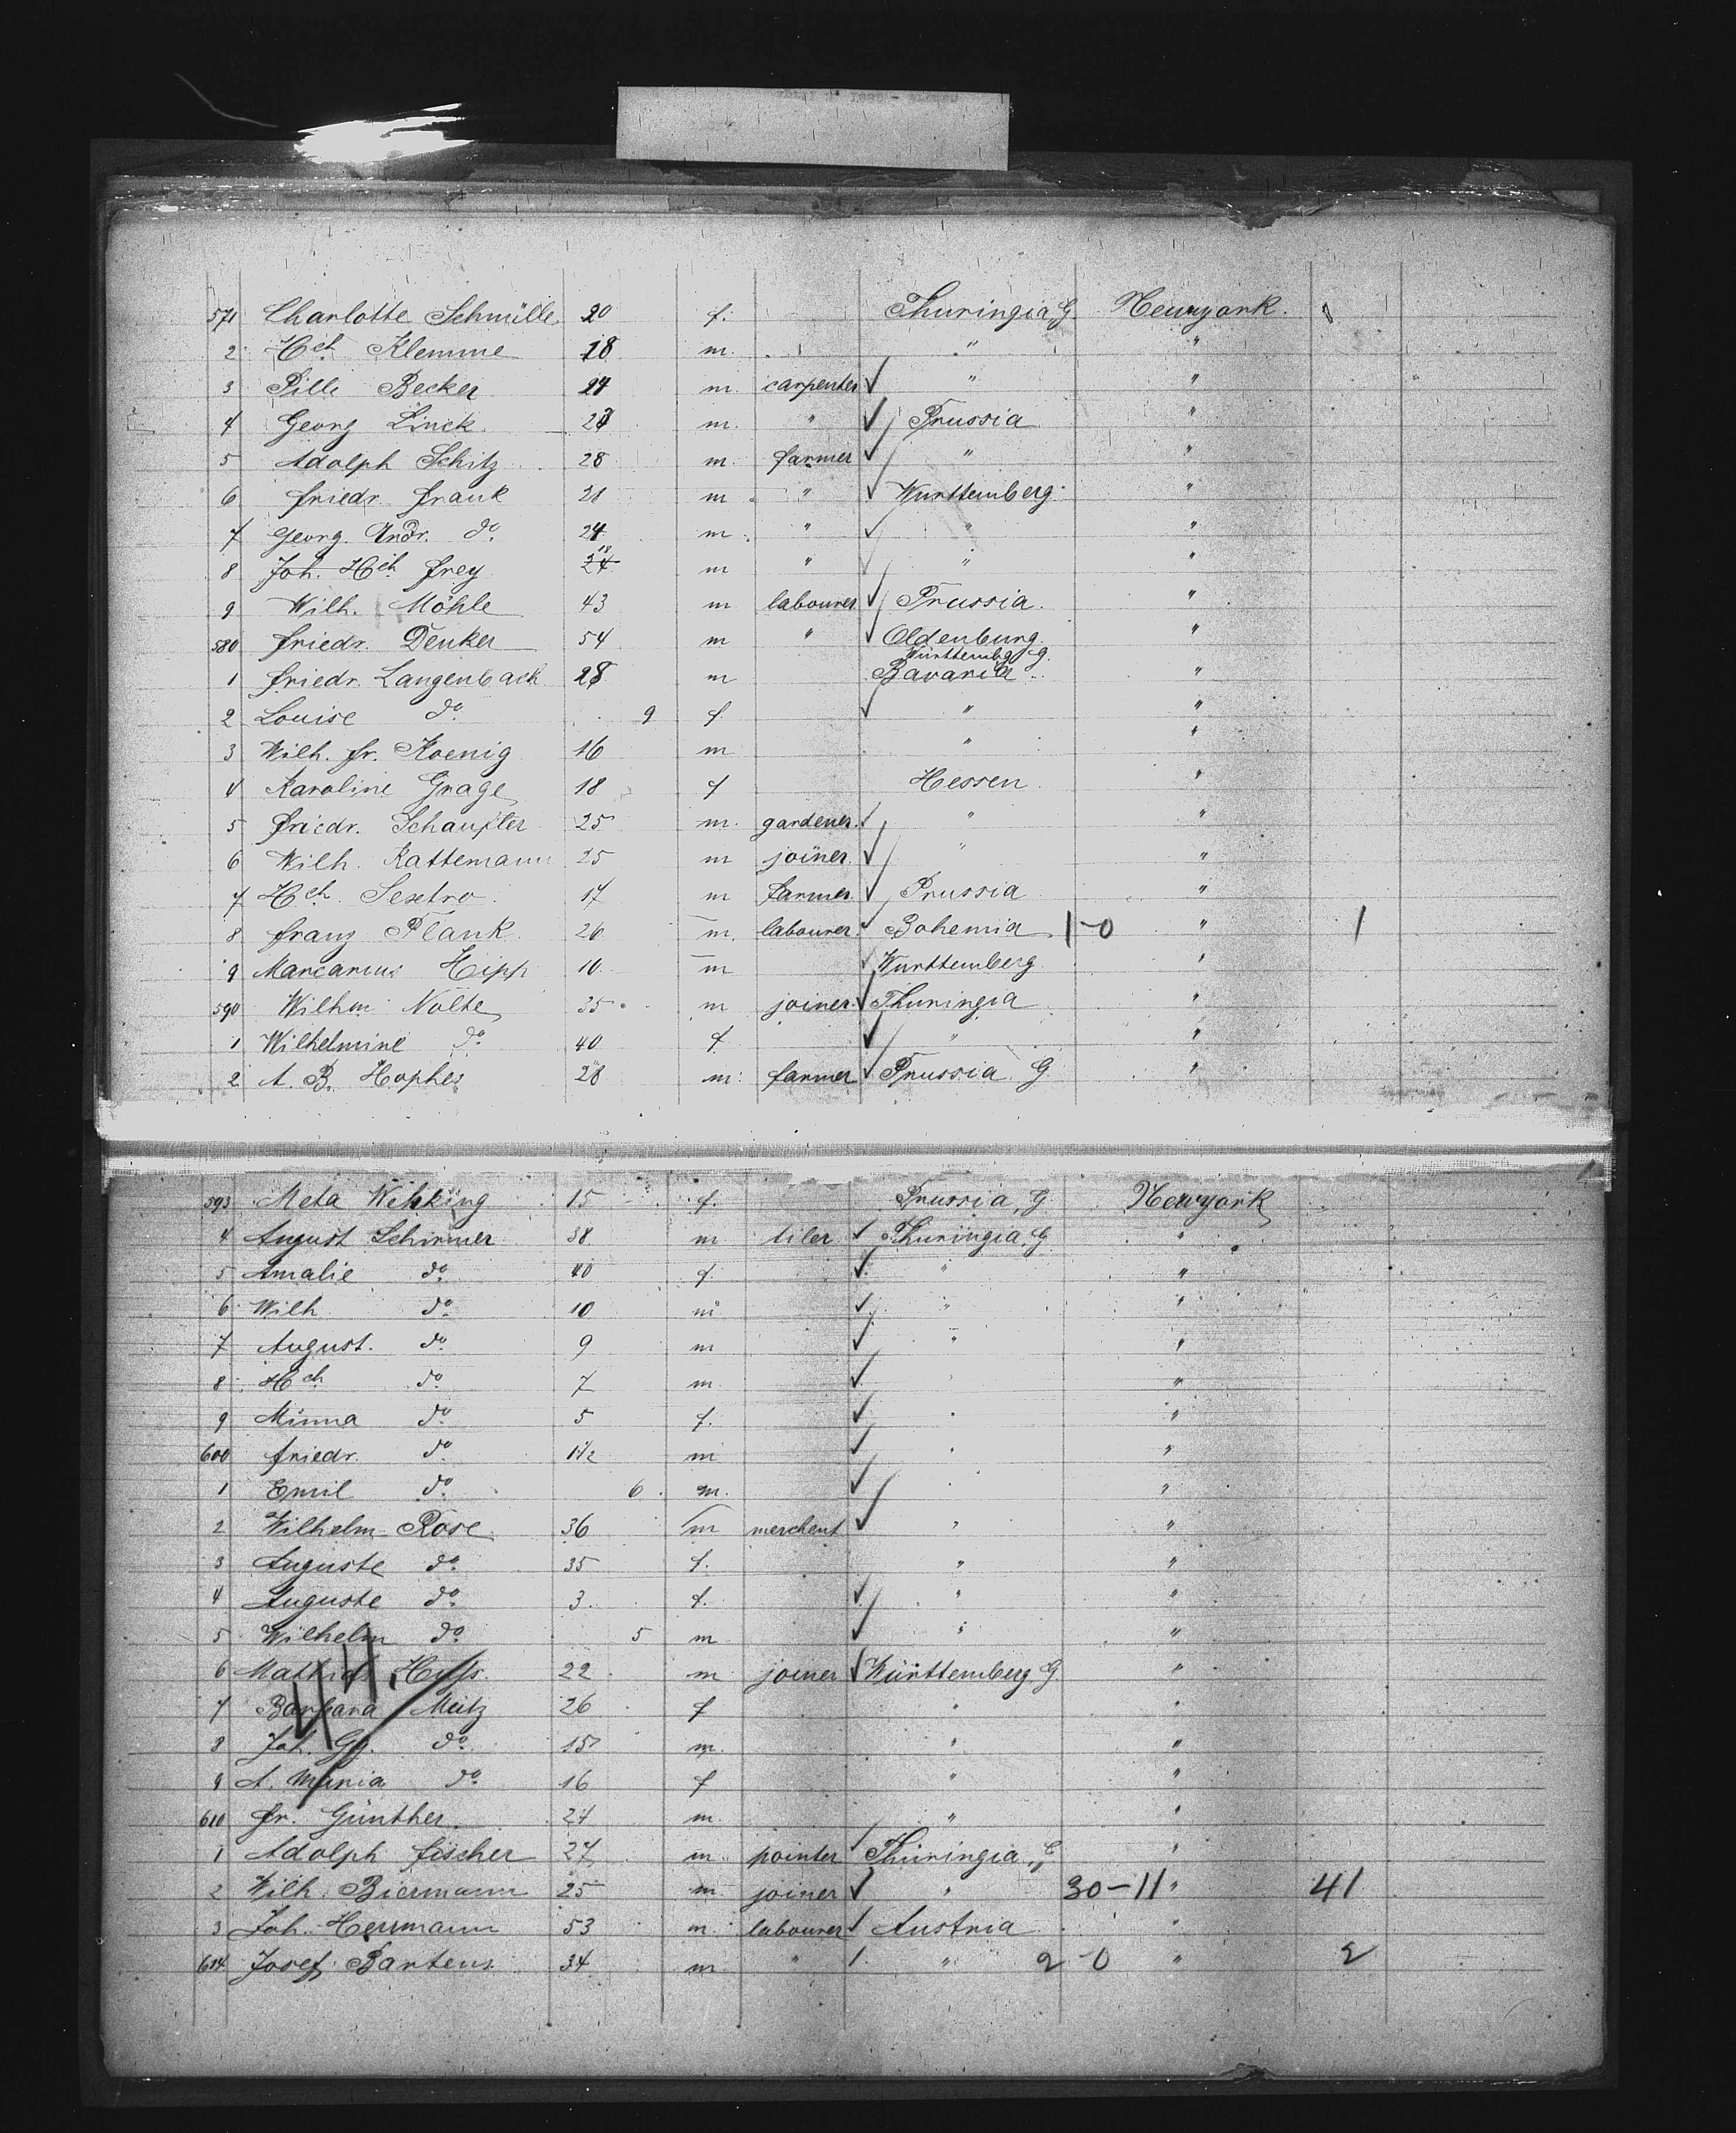 571 Charlotte Schmülle 20 f. Thuringia, G Newyork.
2 Hch Klemme 18 m. " "
3 Pille Becker 24 m. carpenter " "
4 Georg Linck. 27 m. " Prussia "
5 Adolph Schitz 28 m. farmer " "
6 Friedr. Frank 21 m " Württemberg "
7 Georg Andr. do 24 m. " " "
8 Joh. Hch Frey 24 18 m " " "
9 Wilh. Möhle 43 m labourer Prussia. "
580 Friedr. Denker 54 m " Oldenburg. "
1 Friedr. Langenbach 28 m Württembg G. Bavaria "
2 Louise do 9 f " "
3 Wilh. Fr. Koenig 16 m " "
4 Karoline Grage 18 f Hessen. "
5 Friedr. Schaufler 25 m. gardener. " "
6 Wilh. Kattemann 25 m joiner. " "
7 Hch. Sextro. 17 m farmer Prussia "
8 Franz Plank 26 m. labourer. Bohemia. 1-0 " 1
9 Marcarius Hipp 10. m Württemberg "
590 Wilhm Nolte 35 m joiner. Thuringia "
1 Wilhelmine do 40 f. " "
2 A. B. Hophes 28 m. farmer Prussia G "
593 Meta Wehking 15 f. Prussia, G. Newyork
4 August Schirmer 38 m tiler Thuringia, G "
5 Amalie do 40 f. " "
6 Wilh do 10 m " "
7 August. do 9 m " "
8 Hch do 7 m. " "
9 Minna do 5 f. " "
600 Friedr. do 1 1/2 m " "
1 Emil do 6 m. " "
2 Wilhelm Rose 36 m merchent " "
3 Auguste do 35 f. " "
4 Auguste do 3. f. " "
5 Wilhelm do 5 m " "
6 22 m joiner Württemberg G. "
7 Barbara Meitz 26 f " "
8 Joh. Gg. do 15 m. " "
9 A. Maria do 16 f " "
610 Fr. Günther. 24 m. " "
1 Adolph Fischer 27 m. pointer Thüringia, G "
2 Wilh. Biermann 25 m joiner " 30-11 " 41
3 Joh. Herrmann 53 m labourer Austria "
614 Josef Bartens 34 m " " 2 0 " 2
44